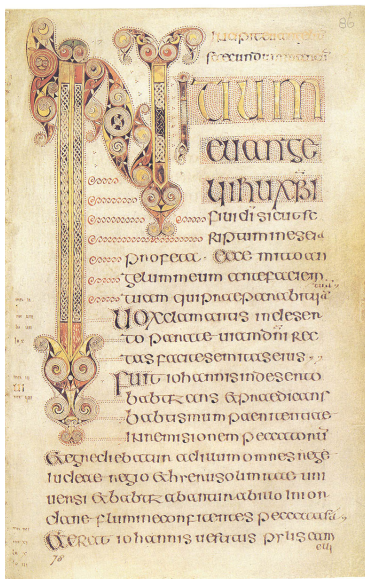 86
INITIUM
euange
lii ihu xpi
filii di sicut sc
riptum in esei
profeta · Ecce mitto an
gelum meum ante faciem
tuam qui praeparabit uiam
Uox clamantis in deser
to parate uiam dni rec
tas facite semitas eius
Fuit iohannis in deserto
babtizans & praedicans
babtismum paenitentiae
in remisionem peccatorum
& egrediebatur ad illum omnes
regio & hierusolimitae uni
uersi & babtizabantur ab illo in ior
dane flumine confitentes peccata sua
Et erat iohannis uestitus pilis cam
eli